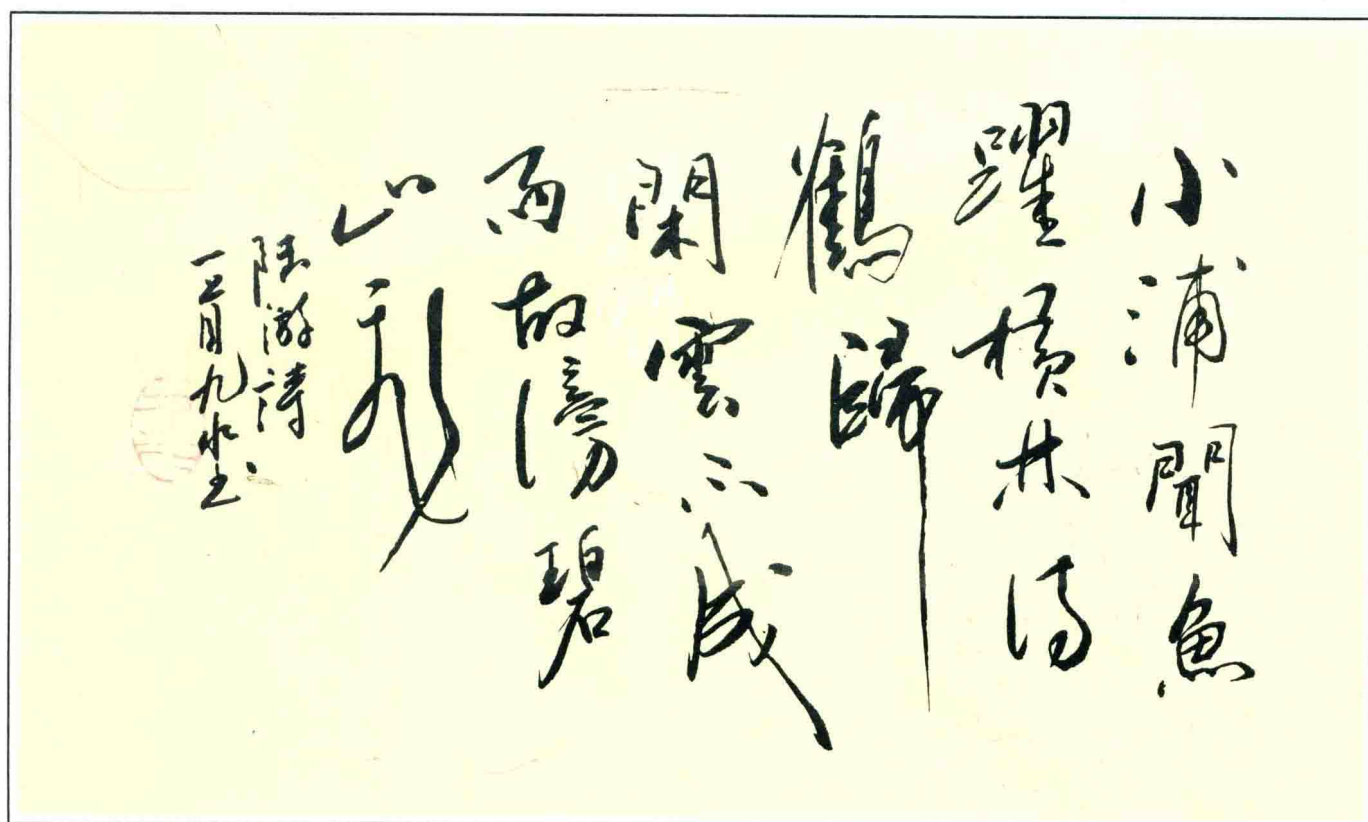 小浦聞魚
躍橫林待
鶴歸
閑雲不成
雨故傍碧
山飛
陸游詩
月九水书